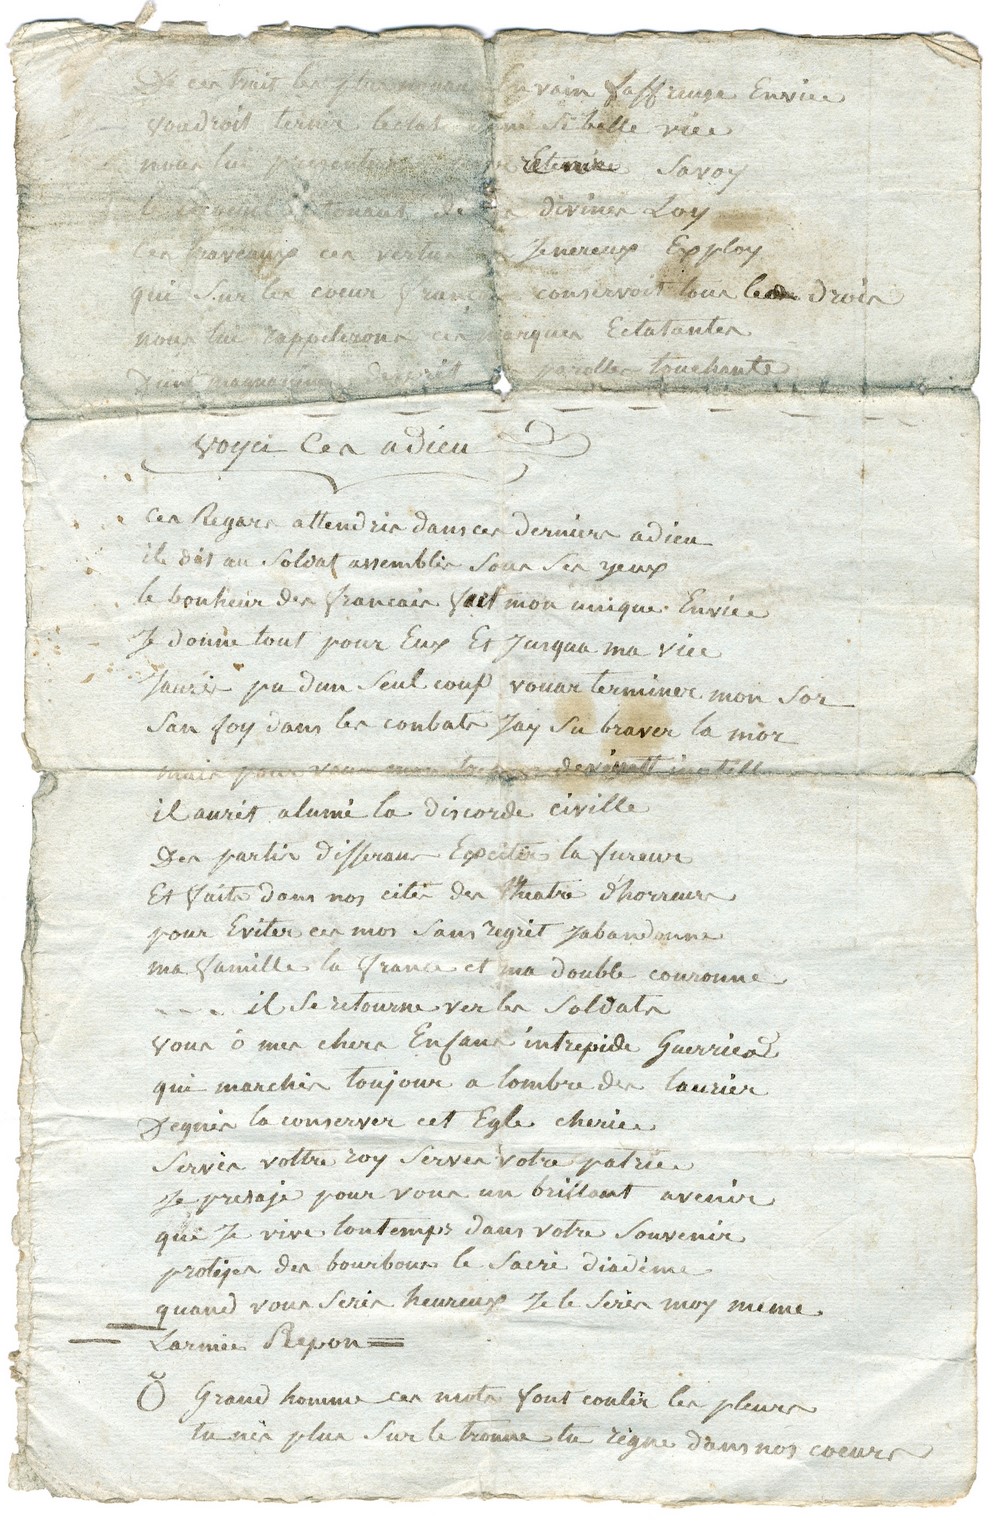 De ces trait les plus En vain Laffreuse Enviee
voudroit ternir leclat dune Si belle viee
nous lui Savoy
de divines Loy
Ces travaux ces vertus Jenereux Exploy
qui Sur les coeur francais conservoit tous drois
nous lui rappelerons ces marques Eclatantes
Dun parolles touchante
voyci Ces adieu
Ces Regars attendris dans ces derniers adieu
il dit au Soldat assemblis Sous Ses yeux
le bonheur des francais fait mon unique Enviee
Je donne tout pour Eux Et Jusqua ma viee
Jaurés pu dun Seul coup vouar terminer mon Sor
San foy dans les conbats Jay Su braver la mor
mais pour vous
il aurét alumé la discorde civille
Des partis differans Exciter la fureur
Et faits dans nos cités des theatre d'horreurs
pour Eviter ces mos Sans regrét Jabandonne
ma famille la france et ma double couronne
il Se retourne ver les Soldats
vous ô mes chers Enfans intrepide Guerriers
qui marchés toujour a lombre des laurier
Degnés la conserver cet Egle cheriee
Servés vottre roy Servés votre patriee
Je presaje pour vous un brillant avenir
que Je vive lontemps dans votre Souvenir
protéjes des bourbons le Sacré diadême
quand vous Serés heureux Je le Serés moy meme
Larmée Repon
Ô Grand homme ces mots font coulér les pleurs
tu nés plus Sur le tronne tu régne dans nos coeurs